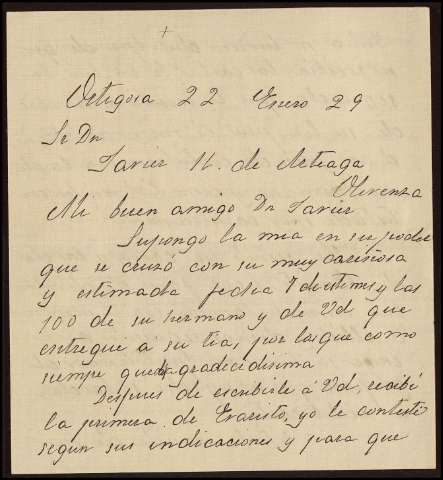 +
Ortigosa 22 Enero 29
Sr Dn
Javier M. de Arteaga
Olivenza
Mi buen amigo Dn Javier
Supongo la mia en su poder
que se cruzó con su muy cariñosa
y estimada fecha 8 del ultimo y las
100 de su hermano y de Vd que
entregue á su tia, por las que como
siempre queda agradecidisima
Despues de escribirle á Vd, recibi
la primera de Evaristo, yo le contesté
segun sus indicaciones y para que